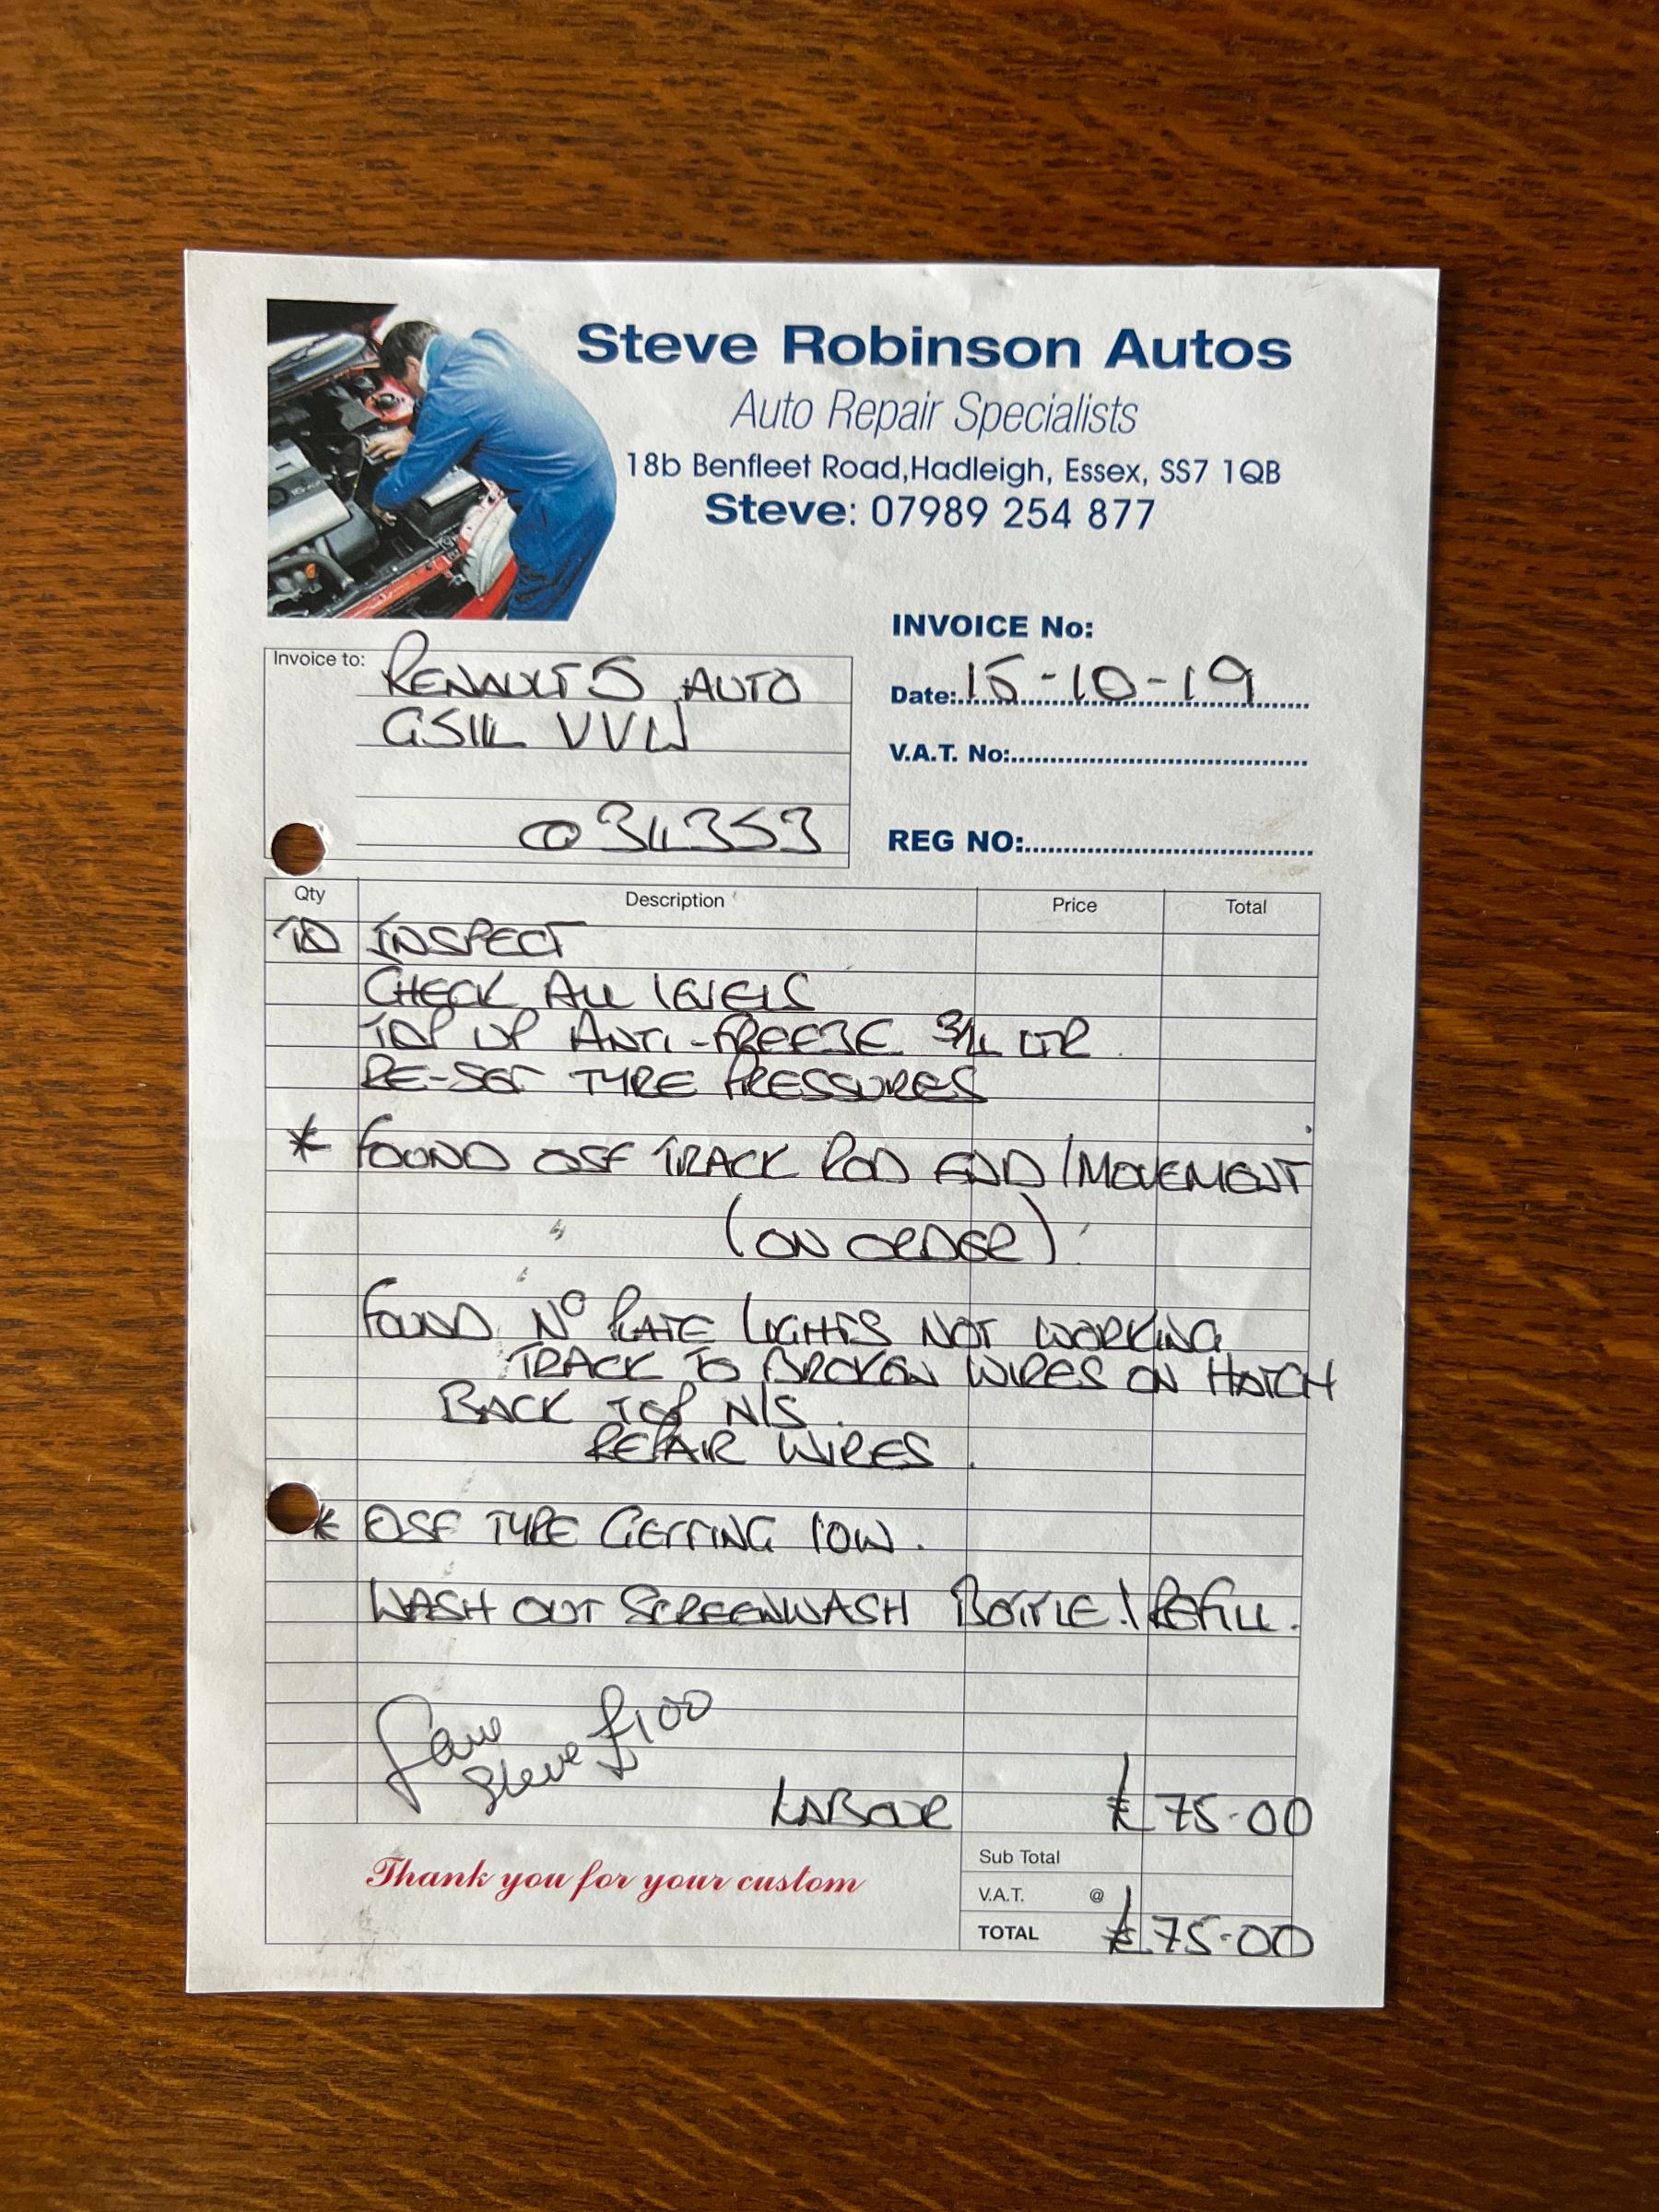 Steve Robinson Autos
Auto Repair Specialists
18b Benfleet Road,Hadleigh, Essex, SS7 1QB
Steve: 07989 254 877
INVOICE No:
Invoice to: RENAULT 5 AUTO
Date: 15-10-19
G514 VVW
V.A.T. No:
@ 34353
REG NO:
Qty Description Price Total
TO INSPECT
CHECK ALL LEVELS
TOP UP ANTI-FREEZE 3/4 LTR
RE-SET TYRE PRESSURES
* FOUND OSF TRACK ROD END / MOVEMENT
(ON ORDER)
FOUND No PLATE LIGHTS NOT WORKING
TRACK TO BROKEN WIRES ON HATCH
BACK TOP N/S.
REPAIR WIRES.
* OSF TYRE GETTING LOW.
WASH OUT SCREENWASH BOTTLE./REFILL.
Gave
Steve £100
LABOUR £75-00
Sub Total
Thank you for your custom
V.A.T. @
TOTAL £75-00